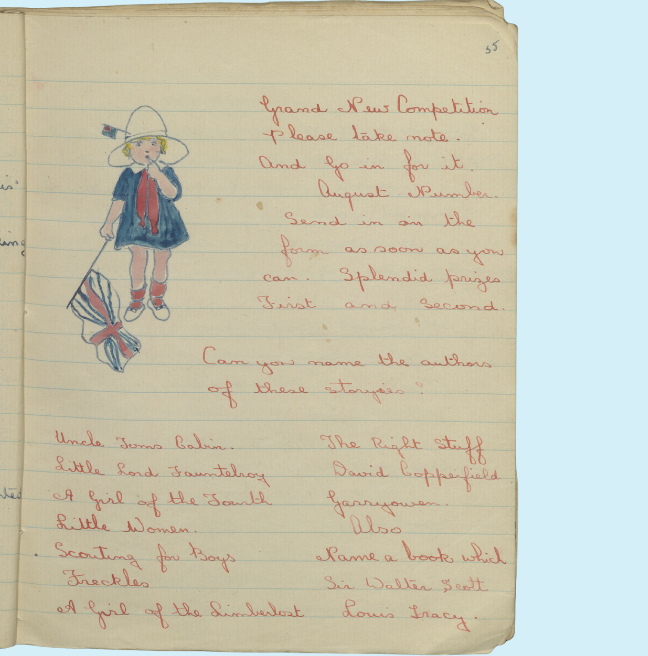 55
Grand New Competition
Please take note.
And go in for it.
August Number.
Send in on the
form as soon as you
can. Splendid prizes
First and Second.
Can you name the authors
of these storyies?
Uncle Toms Cabin.
Little Lord Fauntelroy
A Girl of the Fourth
Little Women.
Scouting for Boys
Freckles
A Girl of the Limberlost
The Right Stuff
David Copperfield
Garryowen.
Also
Name a book which
Sir Walter Scott
Louis Tracy.